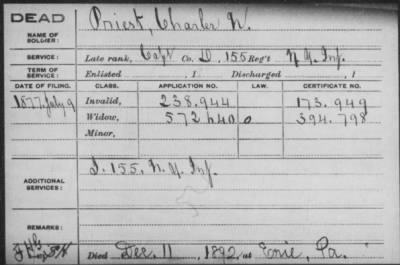 DEAD
NAME OF SOLDIER:
Priest, Charles W.
SERVICE:
Late rank, Co. D, 155 Reg't N.Y. Inf.
TERM OF SERVICE:
Enlisted , 1 Discharged , 1
DATE OF FILING. CLASS. APPLICATION NO. LAW. CERTIFICATE NO.
1877. July 9 Invalid, 238.944 173.949
Widow, 572640 394.798
Minor,
ADDITIONAL SERVICES:
I. 155. N.Y. Inf.
REMARKS:
Died Dec. 11, 1892, at Erie, Pa.